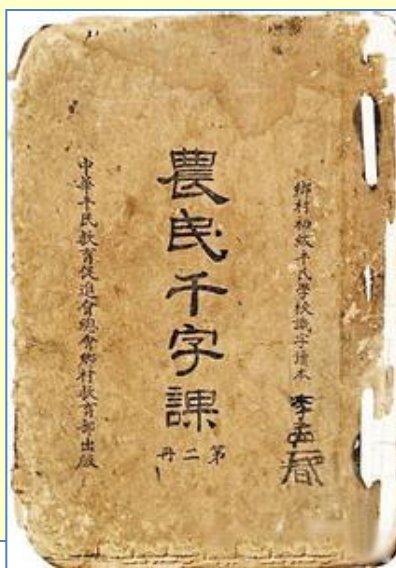 鄉村初級平民學校識字讀本
農民千字課
第二冊
中華平民教育促進會總會鄉村教育部出版